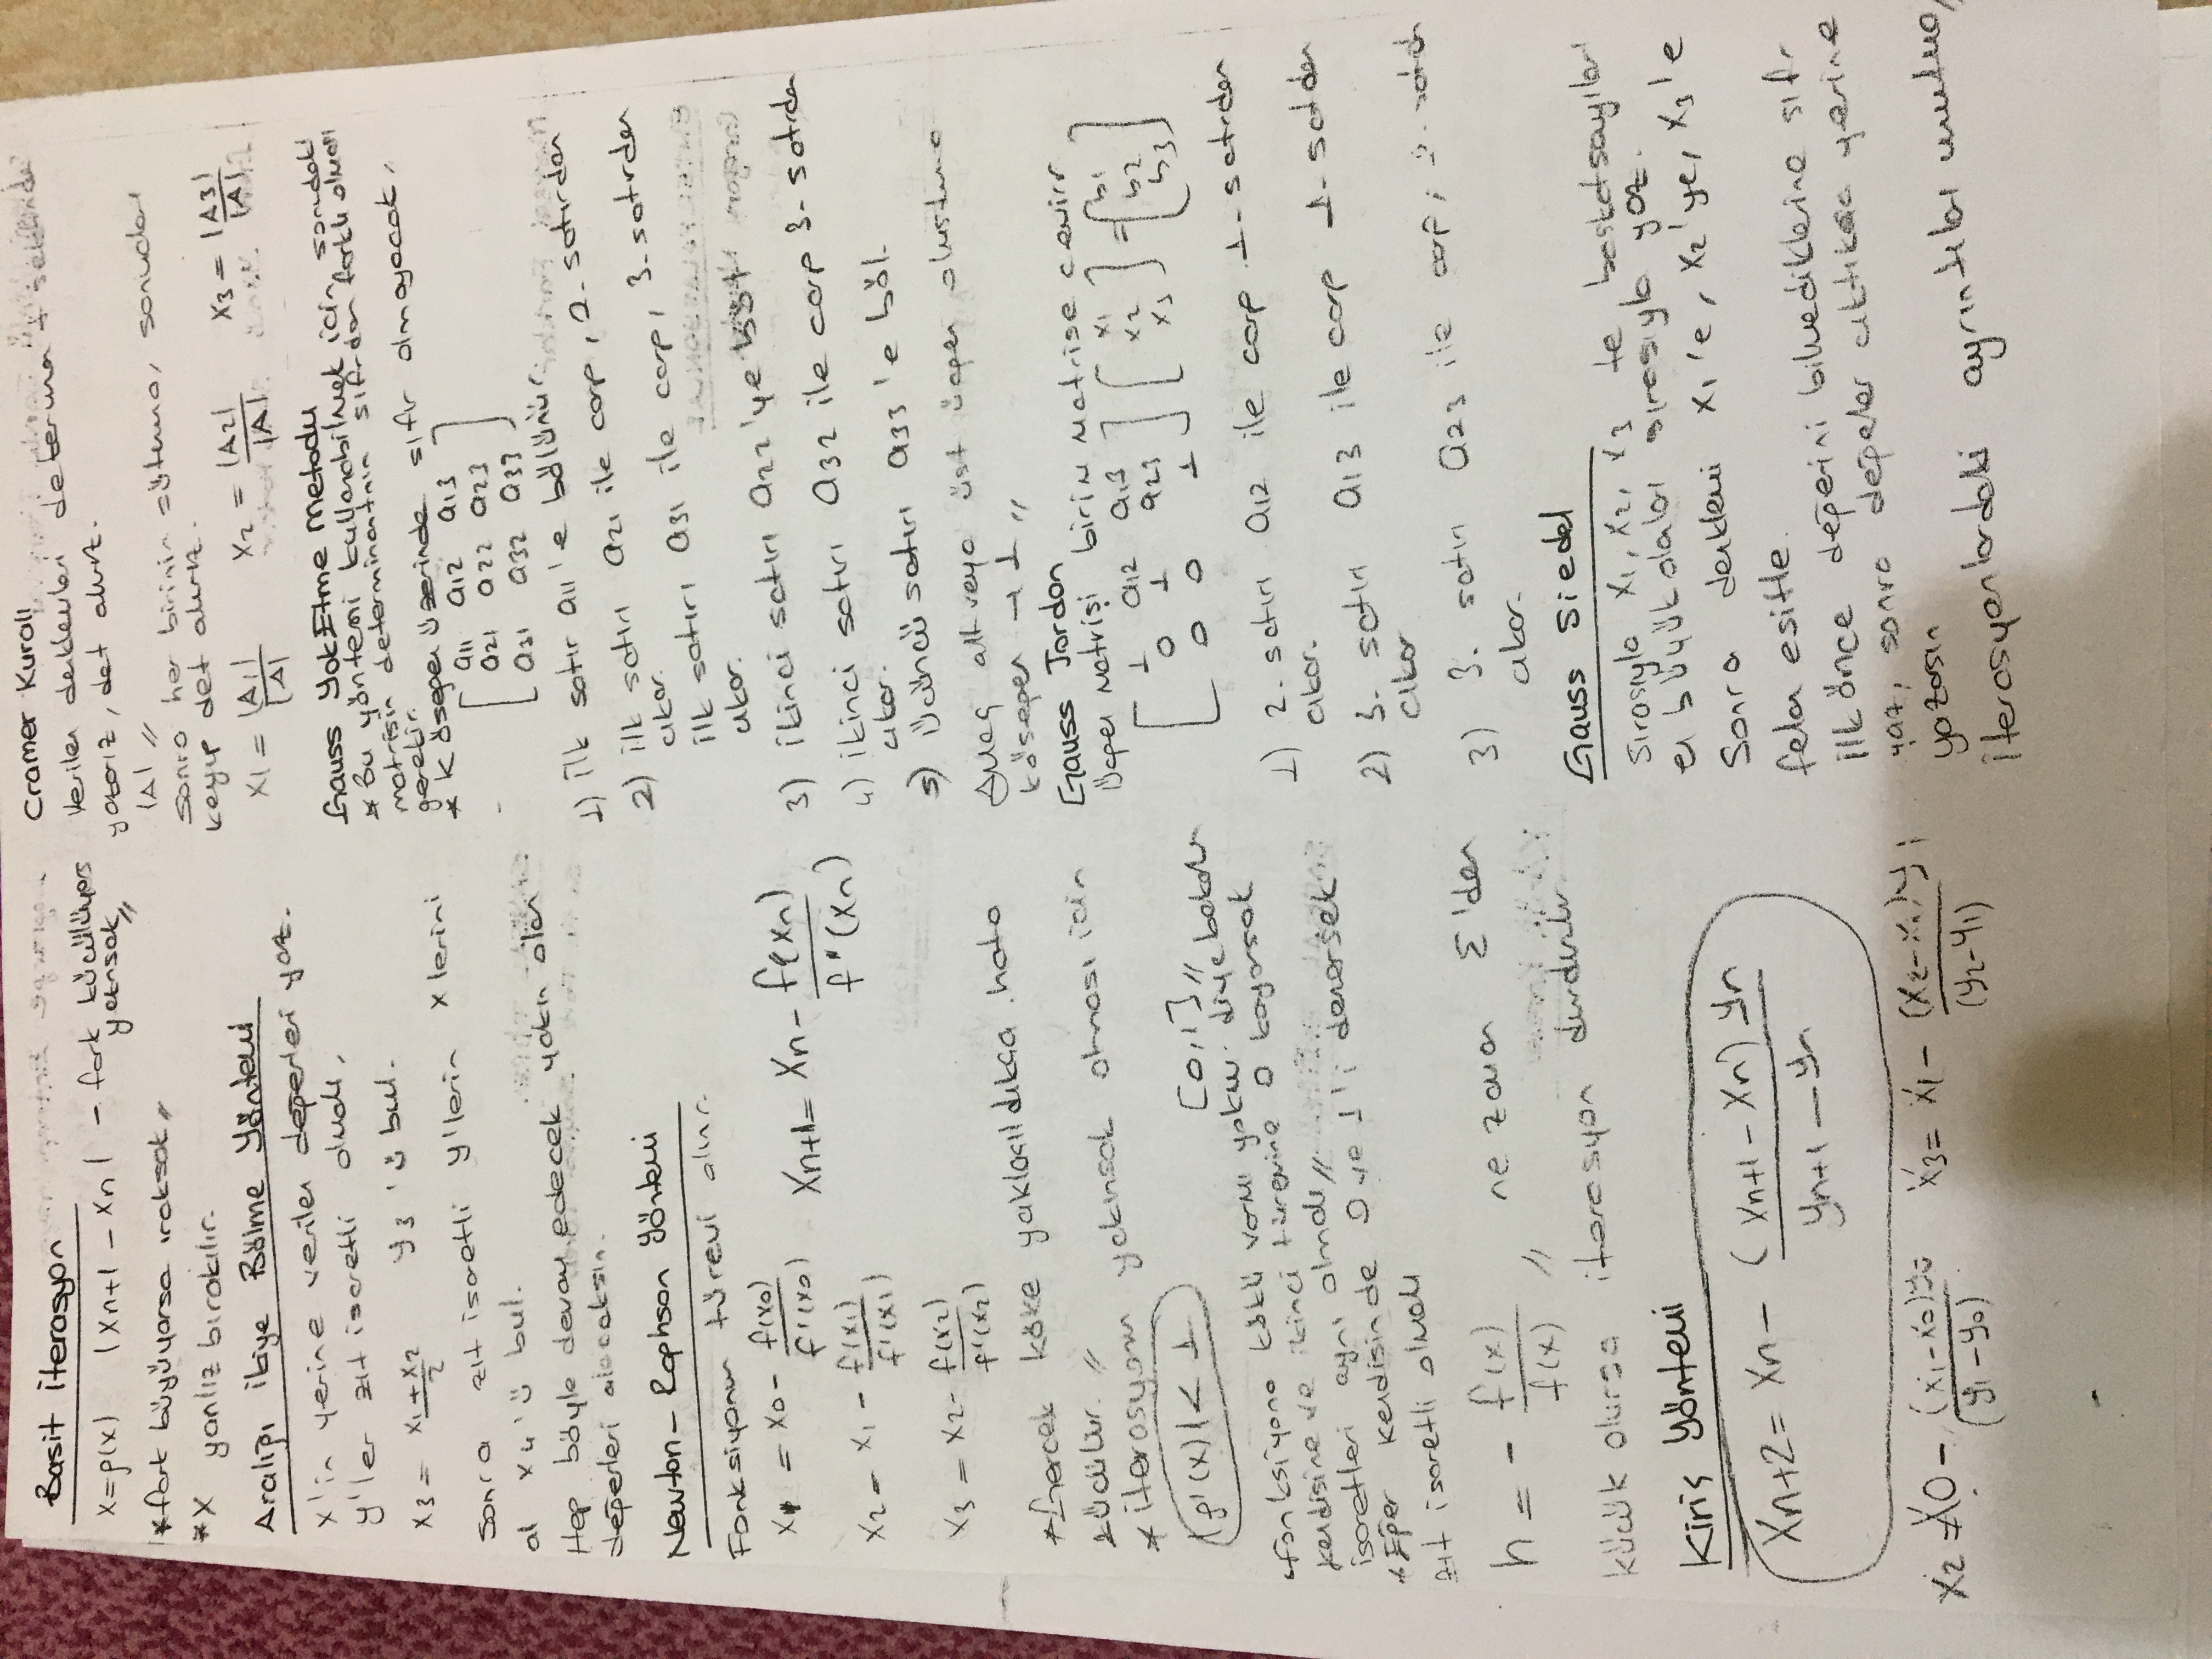 Basit iterasyon
x=g(x) |xn+1 - xn| - fark küçülüyors
yakınsak //
*fark büyüyorsa ıraksak //
*X yanlız bırakılır.
Aralığı ikiye Bölme Yöntemi
x'in yerine verilen değerleri yaz.
y'ler zıt işaretli olmalı.
x3 = x1+x2 / 2 y3 'ü bul.
Sonra zıt işaretli y'lerin x lerini
al x4'ü bul.
Hep böyle devam edecek yakın olan
değerleri alacaksın.
Newton-Raphson Yöntemi
Fonksiyonun türevi alınır.
x1 = x0 - f(x0) / f'(x0)
xn+1 = xn - f(xn) / f'(xn)
x2 = x1 - f(x1) / f'(x1)
x3 = x2 - f(x2) / f'(x2)
*Gerçek köke yaklaşıldıkça hata
küçülür. //
*iterasyonun yakınsak olması için
|g'(x)| < 1 [0,1] //
*fonksiyona kökü varmı yokmu diye bakalım
kendisine ve ikinci türevine 0 koyarsak
işaretleri aynı olmalı //
*Eğer kendisinde 0 ve 1'i denersek
zıt işaretli olmalı
h = - f(x) / f(x) // ne zaman Σ'den
küçük olursa iterasyon durdurulur.
Kiriş Yöntemi
Xn+2 = Xn - (Xn+1 - Xn) yn / yn+1 - yn
x2 = x0 - (x1-x0)y0 / (y1-y0) x3 = x1 - (x2-x1)y1 / (y2-y1)
Cramer Kuralı
Verilen denklemleri determinant şeklinde
yazarız, det alırız.
|A| //
Sonra her birinin sütununa, sonuçları
koyup det alırız.
x1 = |A1| / |A| x2 = |A2| / |A| x3 = |A3| / |A|
Gauss Yok Etme Metodu
* Bu yöntemi kullanabilmek için sorudaki
matrisin determinatının sıfırdan farklı olması
gerekir.
* Köşegen üzerinde sıfır olmayacak.
a11 a12 a13
a21 a22 a23
a31 a32 a33
1) ilk satır a11'e bölünür.
2) ilk satırı a21 ile çarp, 2. satırdan
çıkar.
ilk satırı a31 ile çarp, 3. satırdan
çıkar.
3) ikinci satırı a22'ye böl
4) ikinci satırı a32 ile çarp 3. satırdan
çıkar.
5) Üçüncü satırı a33'e böl.
Amaç alt veya üst üçgen oluşturma
köşegen → 1 //
Gauss Jordon
Üçgen Matrisi birim matrise çevirir
1 a12 a13 x1 b1
0 1 a23 x2 = b2
0 0 1 x3 b3
1) 2. satırı a12 ile çarp 1. satırdan
çıkar.
2) 3. satırı a13 ile çarp 1. satırdan
çıkar
3) 3. satırı a23 ile çarp, 2. satırdan
çıkar.
Gauss Siedel
Sırasıyla x1, x2, x3 te başkatsayıları
en büyük olanları sırasıyla yaz.
Sonra denklemi x1'e, x2'ye, x3'e
felan eşitle.
ilk önce değerini bilmediklerine sıfır
yaz, sonra değerler çıktıkça yerine
yazarsın
iterasyonlardaki ayrıntıları unutma //